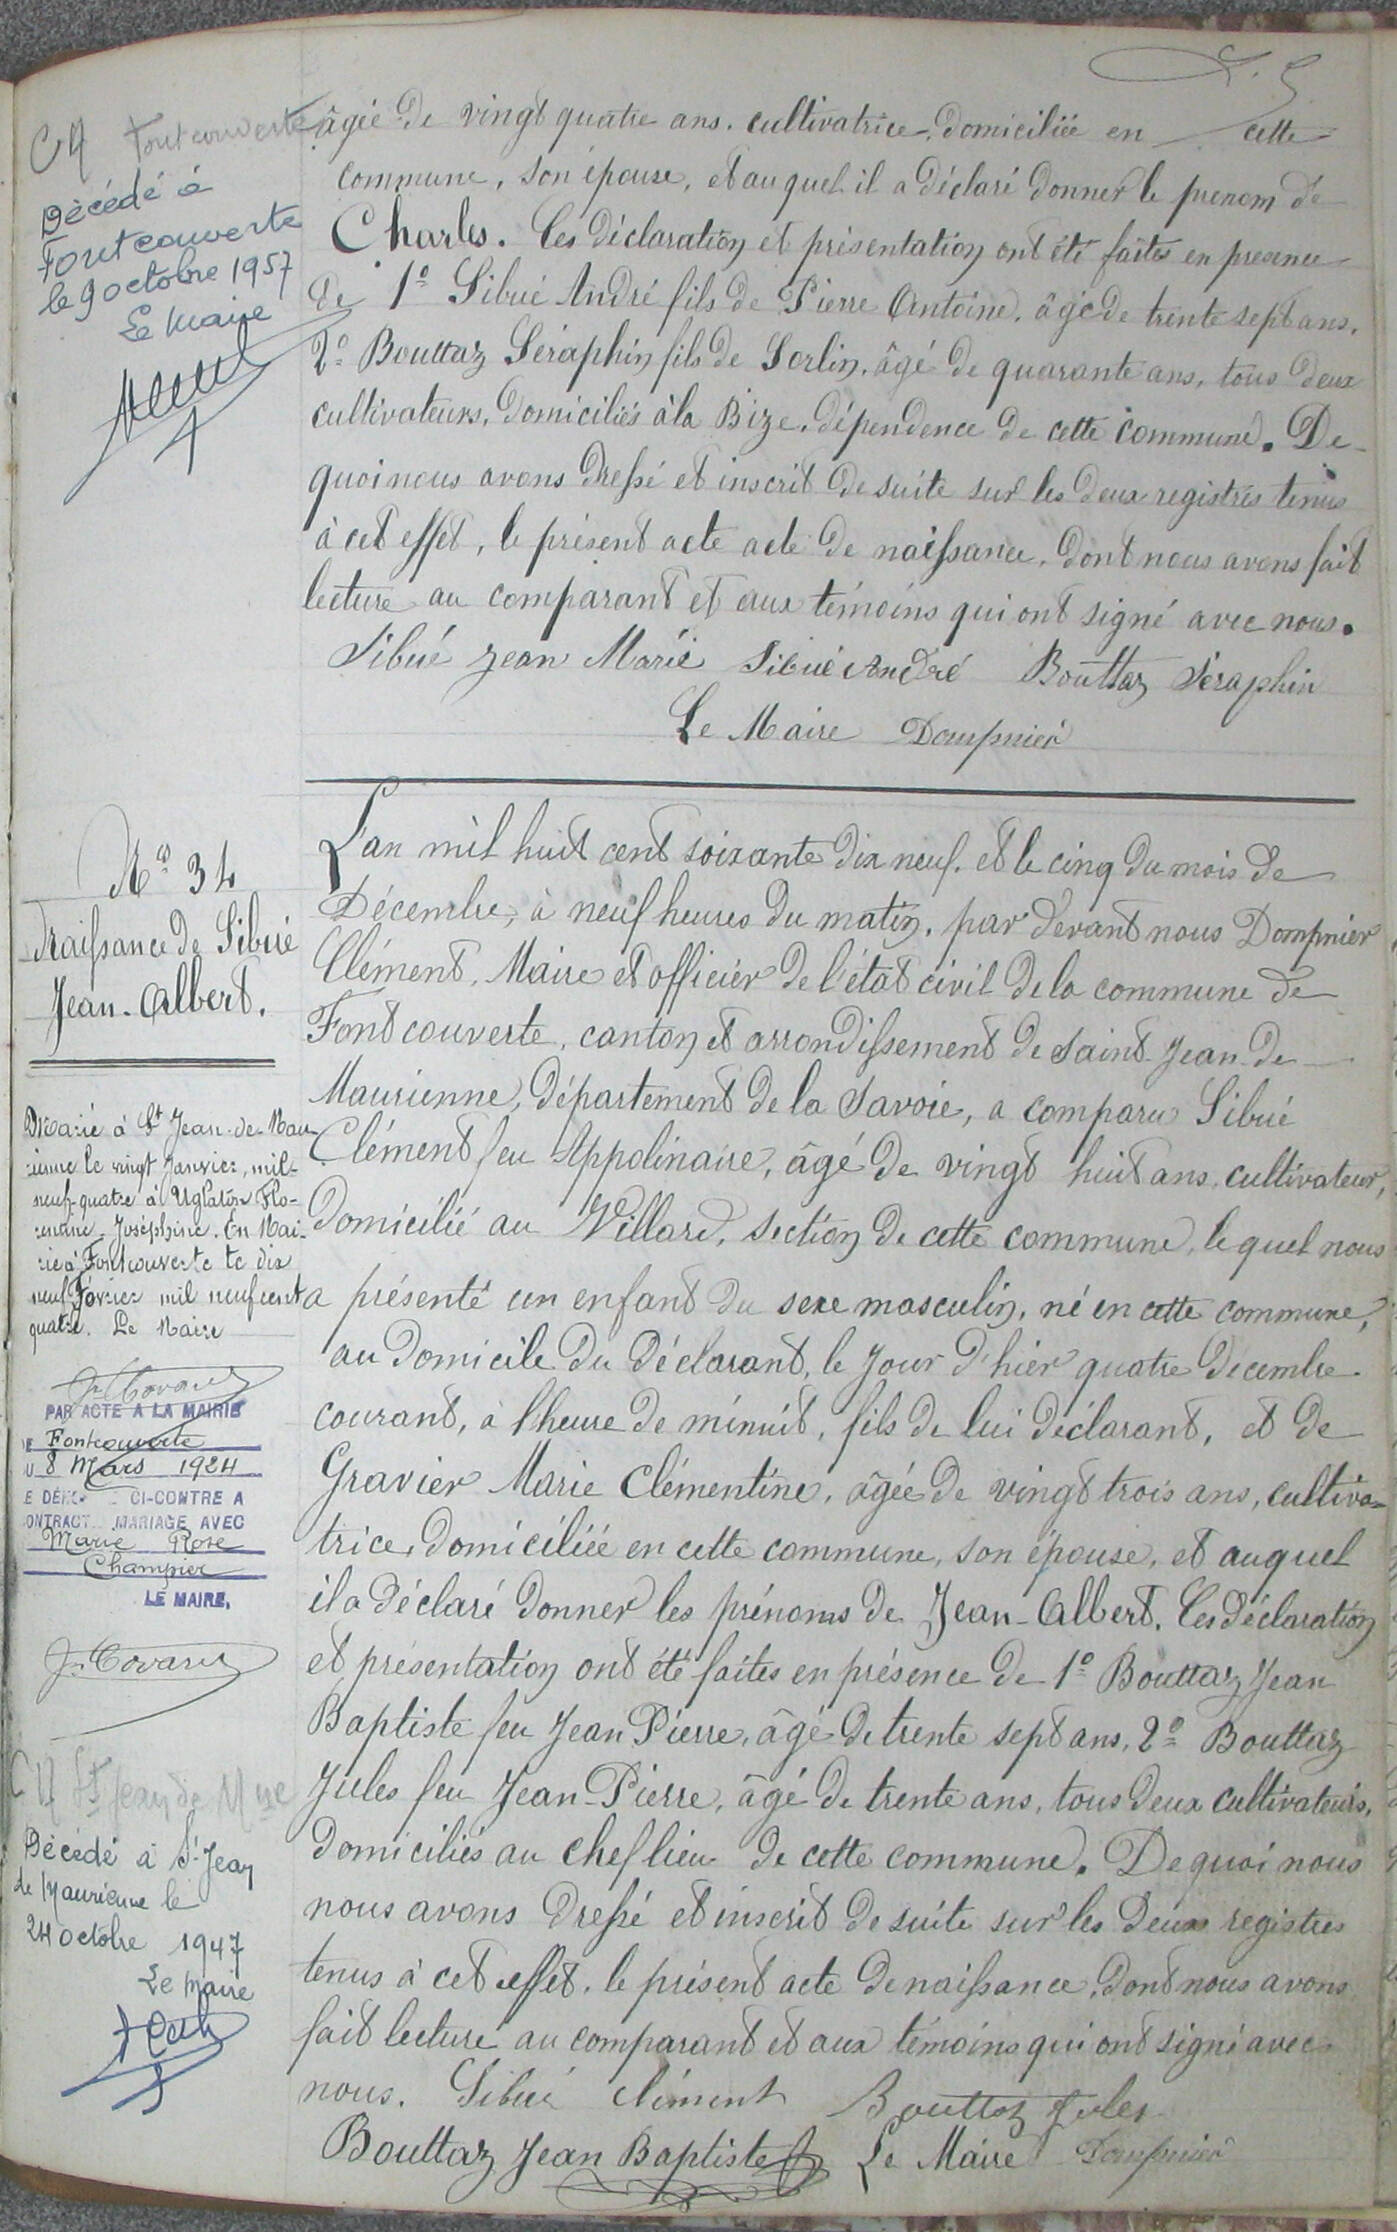 âgée de vingt quatre ans. cultivatrice, domiciliée en cette
commune, son épouse, et auquel il a déclaré donner le prenom de
Charles. Ces déclaration et présentation ont été faites en presence
de 1º Sibué André fils de Pierre Antoine, âgé de trente sept ans,
2º Bouttaz Séraphin fils de Sorlin, âgé de quarante ans, tous deux
cultivateurs, domiciliés à la Bize, dépendence de cette commune. De
quoi nous avons dressé et inscrit de suite sur les deux registres tenus
à cet effet, le présent acte acte de naissance, dont nous avons fait
lecture au comparant et aux témoins qui ont signé avec nous.
Sibué Jean Marie Sibué André Bouttaz Séraphin
Le Maire Dompnier
Fontcouverte
Décédé à
Fontcouverte
le 9 octobre 1957
Le Maire
Nº 34
Naissance de Sibué
Jean-Albert.
L'an mil huit cent soixante dix neuf. et le cinq du mois de
Décembre, à neuf heures du matin, par devant nous Dompnier
Clément, Maire et officier de l'état civil de la commune de
Fontcouverte, canton et arrondissement de Saint-Jean-de
Maurienne, département de la Savoie, a comparu Sibué
Clément feu Appolinaire, âgé de vingt huit ans, cultivateur,
domicilié au Villard, section de cette commune, lequel nous
a présenté un enfant du sexe masculin, né en cette commune,
au domicile du déclarant, le jour d'hier quatre décembre
courant, à l'heure de minuit, fils de lui déclarant, et de
Gravier Marie Clémentine, âgée de vingt trois ans, cultiva-
trice, domiciliée en cette commune, son épouse, et auquel
il a déclaré donner les prénoms de Jean-Albert. Ces déclaration
et présentation ont été faites en présence de 1º Bouttaz Jean
Baptiste feu Jean Pierre, âgé de trente sept ans, 2º Bouttaz
Jules feu Jean-Pierre, âgé de trente ans, tous deux cultivateurs,
domiciliés au chef lieu de cette commune. De quoi nous
nous avons dressé et inscrit de suite sur les deux registres
tenus à cet effet, le présent acte de naissance, dont nous avons
fait lecture au comparant et aux témoins qui ont signé avec
nous. Sibué clément Bouttaz Jules
Bouttaz Jean Baptiste Le Maire Dompnier
Marié à St Jean-de-Mau-
rienne le vingt Janvier, mil-
neuf-quatre à Uglatón Flo-
rentine Joséphine. En Mai-
rie à Fontcouverte le dix
neuf Février mil neuf cent
quatre. Le Maire
PAR ACTE A LA MAIRIE
E Fontcouverte
U 8 Mars 1924
E DÉNO CI-CONTRE A
ONTRACT MARIAGE AVEC
Marie Rose
Champier
LE MAIRE,
St Jean de Mne
Décédé à St Jean
de Maurienne le
24 octobre 1947
Le Maire